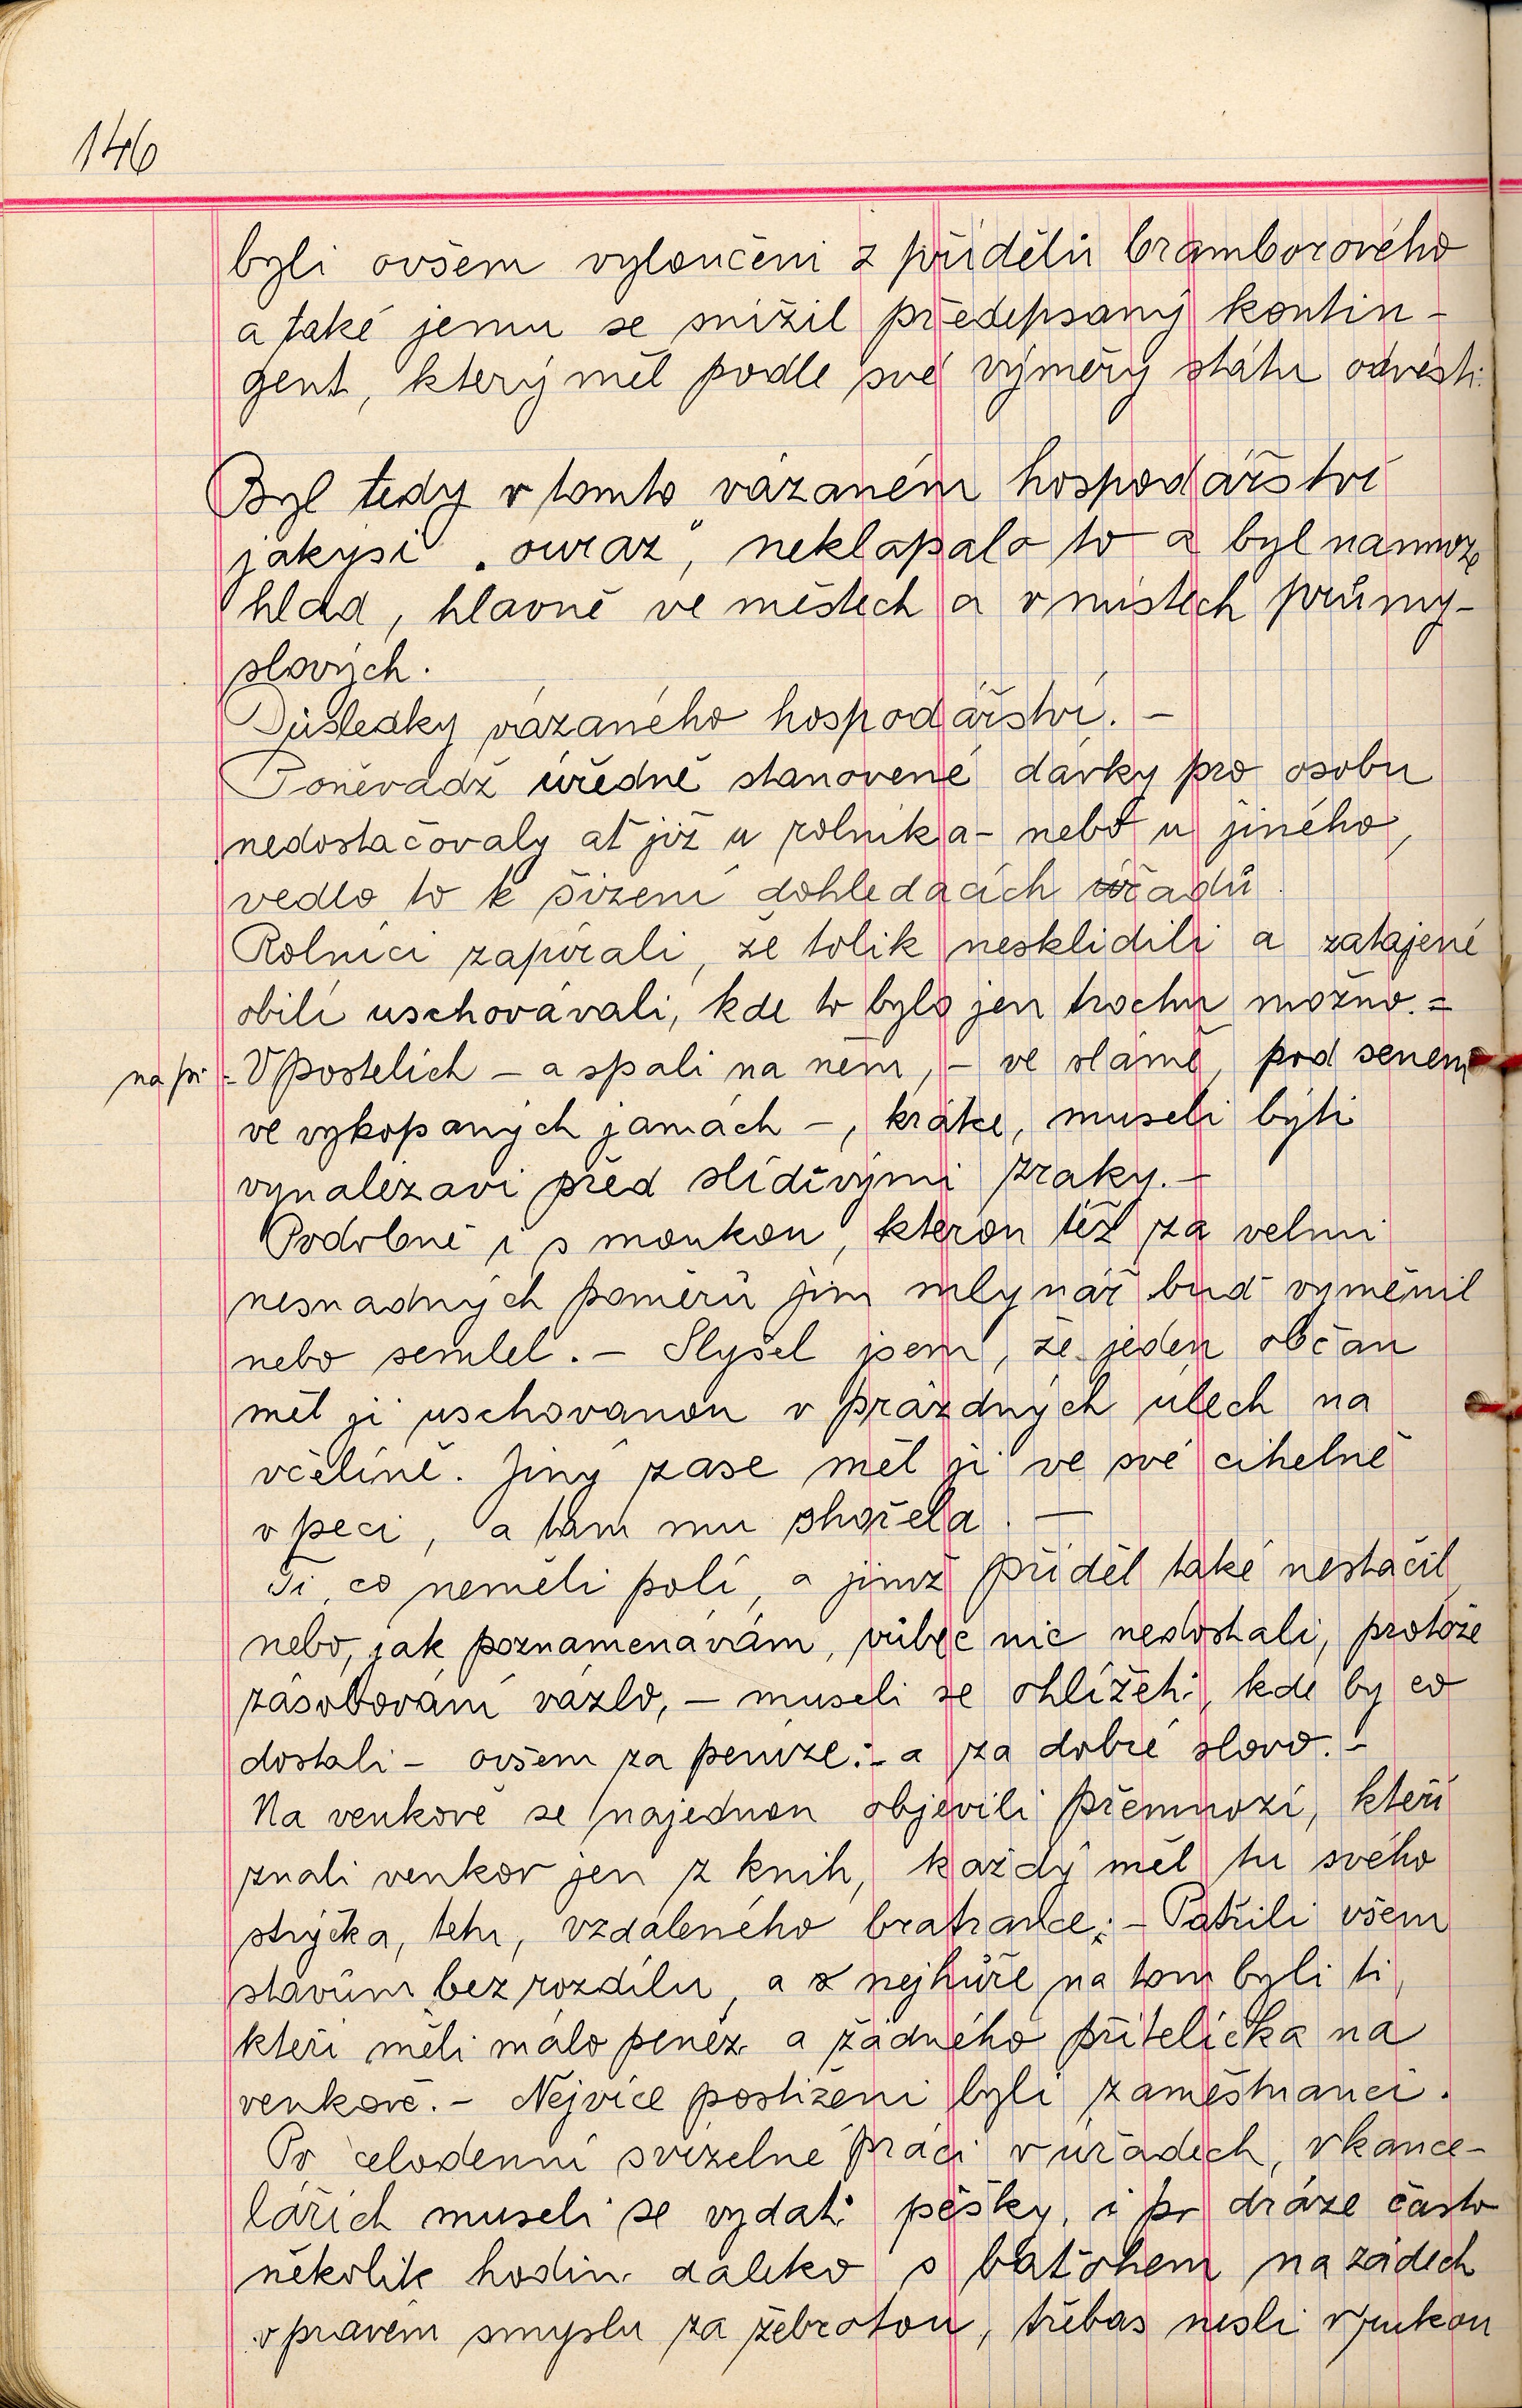 146
byli ovšem vyloučeni z přídělů bramborového
a také jemu se snížil předepsaný kontin-
gent, který měl podle své výměry státu odvésti.
Byl tedy v tomto vázaném hospodářství
jakýsi „ouraz", neklapalo to a byl namnoze
hlad, hlavně ve městech a v místech průmy-
slových.
Důsledky vázaného hospodářství. -
Poněvadž úředně stanovené dávky pro osobu
nedostačovaly ať již u rolníka - nebo u jiného,
vedlo to k šizení dohledacích úřadů.
Rolníci zapírali, že tolik nesklidili a zatajené
obilí uschovávali, kde to bylo jen trochu možno. =
na př = V postelích - a spali na něm, - ve slámě, pod senem
ve vykopaných jamách -, krátce, museli býti
vynalézaví před slídivými zraky. -
Podobně i s moukou, kterou též za velmi
nesnadných poměrů jim mlynář buď vyměnil
nebo semlel. - Slyšel jsem, že jeden občan
měl ji uschovanou v prázdných úlech na
včelíně. Jiný zase měl ji ve své cihelně
v peci, a tam mu shořela. -
Ti, co neměli polí, a jimž příděl také nestačil,
nebo, jak poznamenávám, vůbec nic nedostali, protože
zásobování vázlo, - museli se ohlížeti, kde by co
dostali - ovšem za peníze: - a za dobré slovo. -
Na venkově se najednou objevili přemnozí, kteří
znali venkov jen z knih, každý měl tu svého
strýčka, tetu, vzdáleného bratrance; - Patřili všem
stavům bez rozdílu, a nejhůře na tom byli ti,
kteří měli málo peněz a žádného přítelíčka na
venkově. - Nejvíce postiženi byli zaměstnanci.
Po celodenní svízelné práci v úřadech, v kance-
lářích museli se vydati pěšky, i po dráze často
několik hodin daleko s baťohem na zádech
v pravém smyslu za žebrotou, třebas nesli v rukou